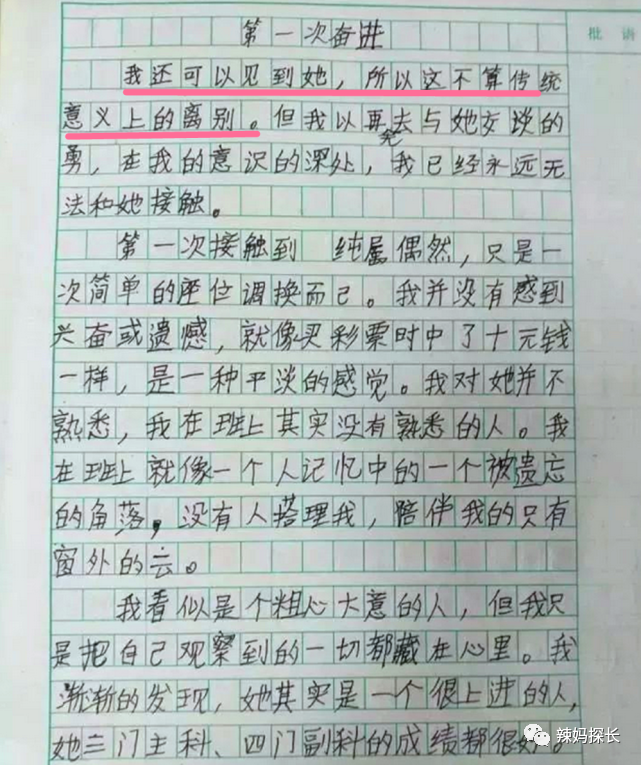 第一次奋进
批语
我还可以见到她，所以这不算传统
意义上的离别。但我以再去与她交谈的
勇，在我的意识的深处，我已经永远无
法和她接触。
第一次接触到 纯属偶然，只是一
次简单的座位调换而已。我并没有感到
兴奋或遗憾，就像买彩票时中了十元钱
一样，是一种平淡的感觉。我对她并不
熟悉，我在班上其实没有熟悉的人。我
在班上就像一个人记忆中的一个被遗忘
的角落，没有人搭理我，陪伴我的只有
窗外的云。
我看似是个粗心大意的人，但我只
是把自己观察到的一切都藏在心里。我
渐渐的发现，她其实是一个很上进的人，
她三门主科、四门副科的成绩都很好。
辣妈探长